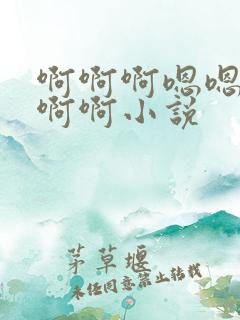 啊啊啊嗯嗯
啊啊小说
茅草堰
未经同意禁止转载